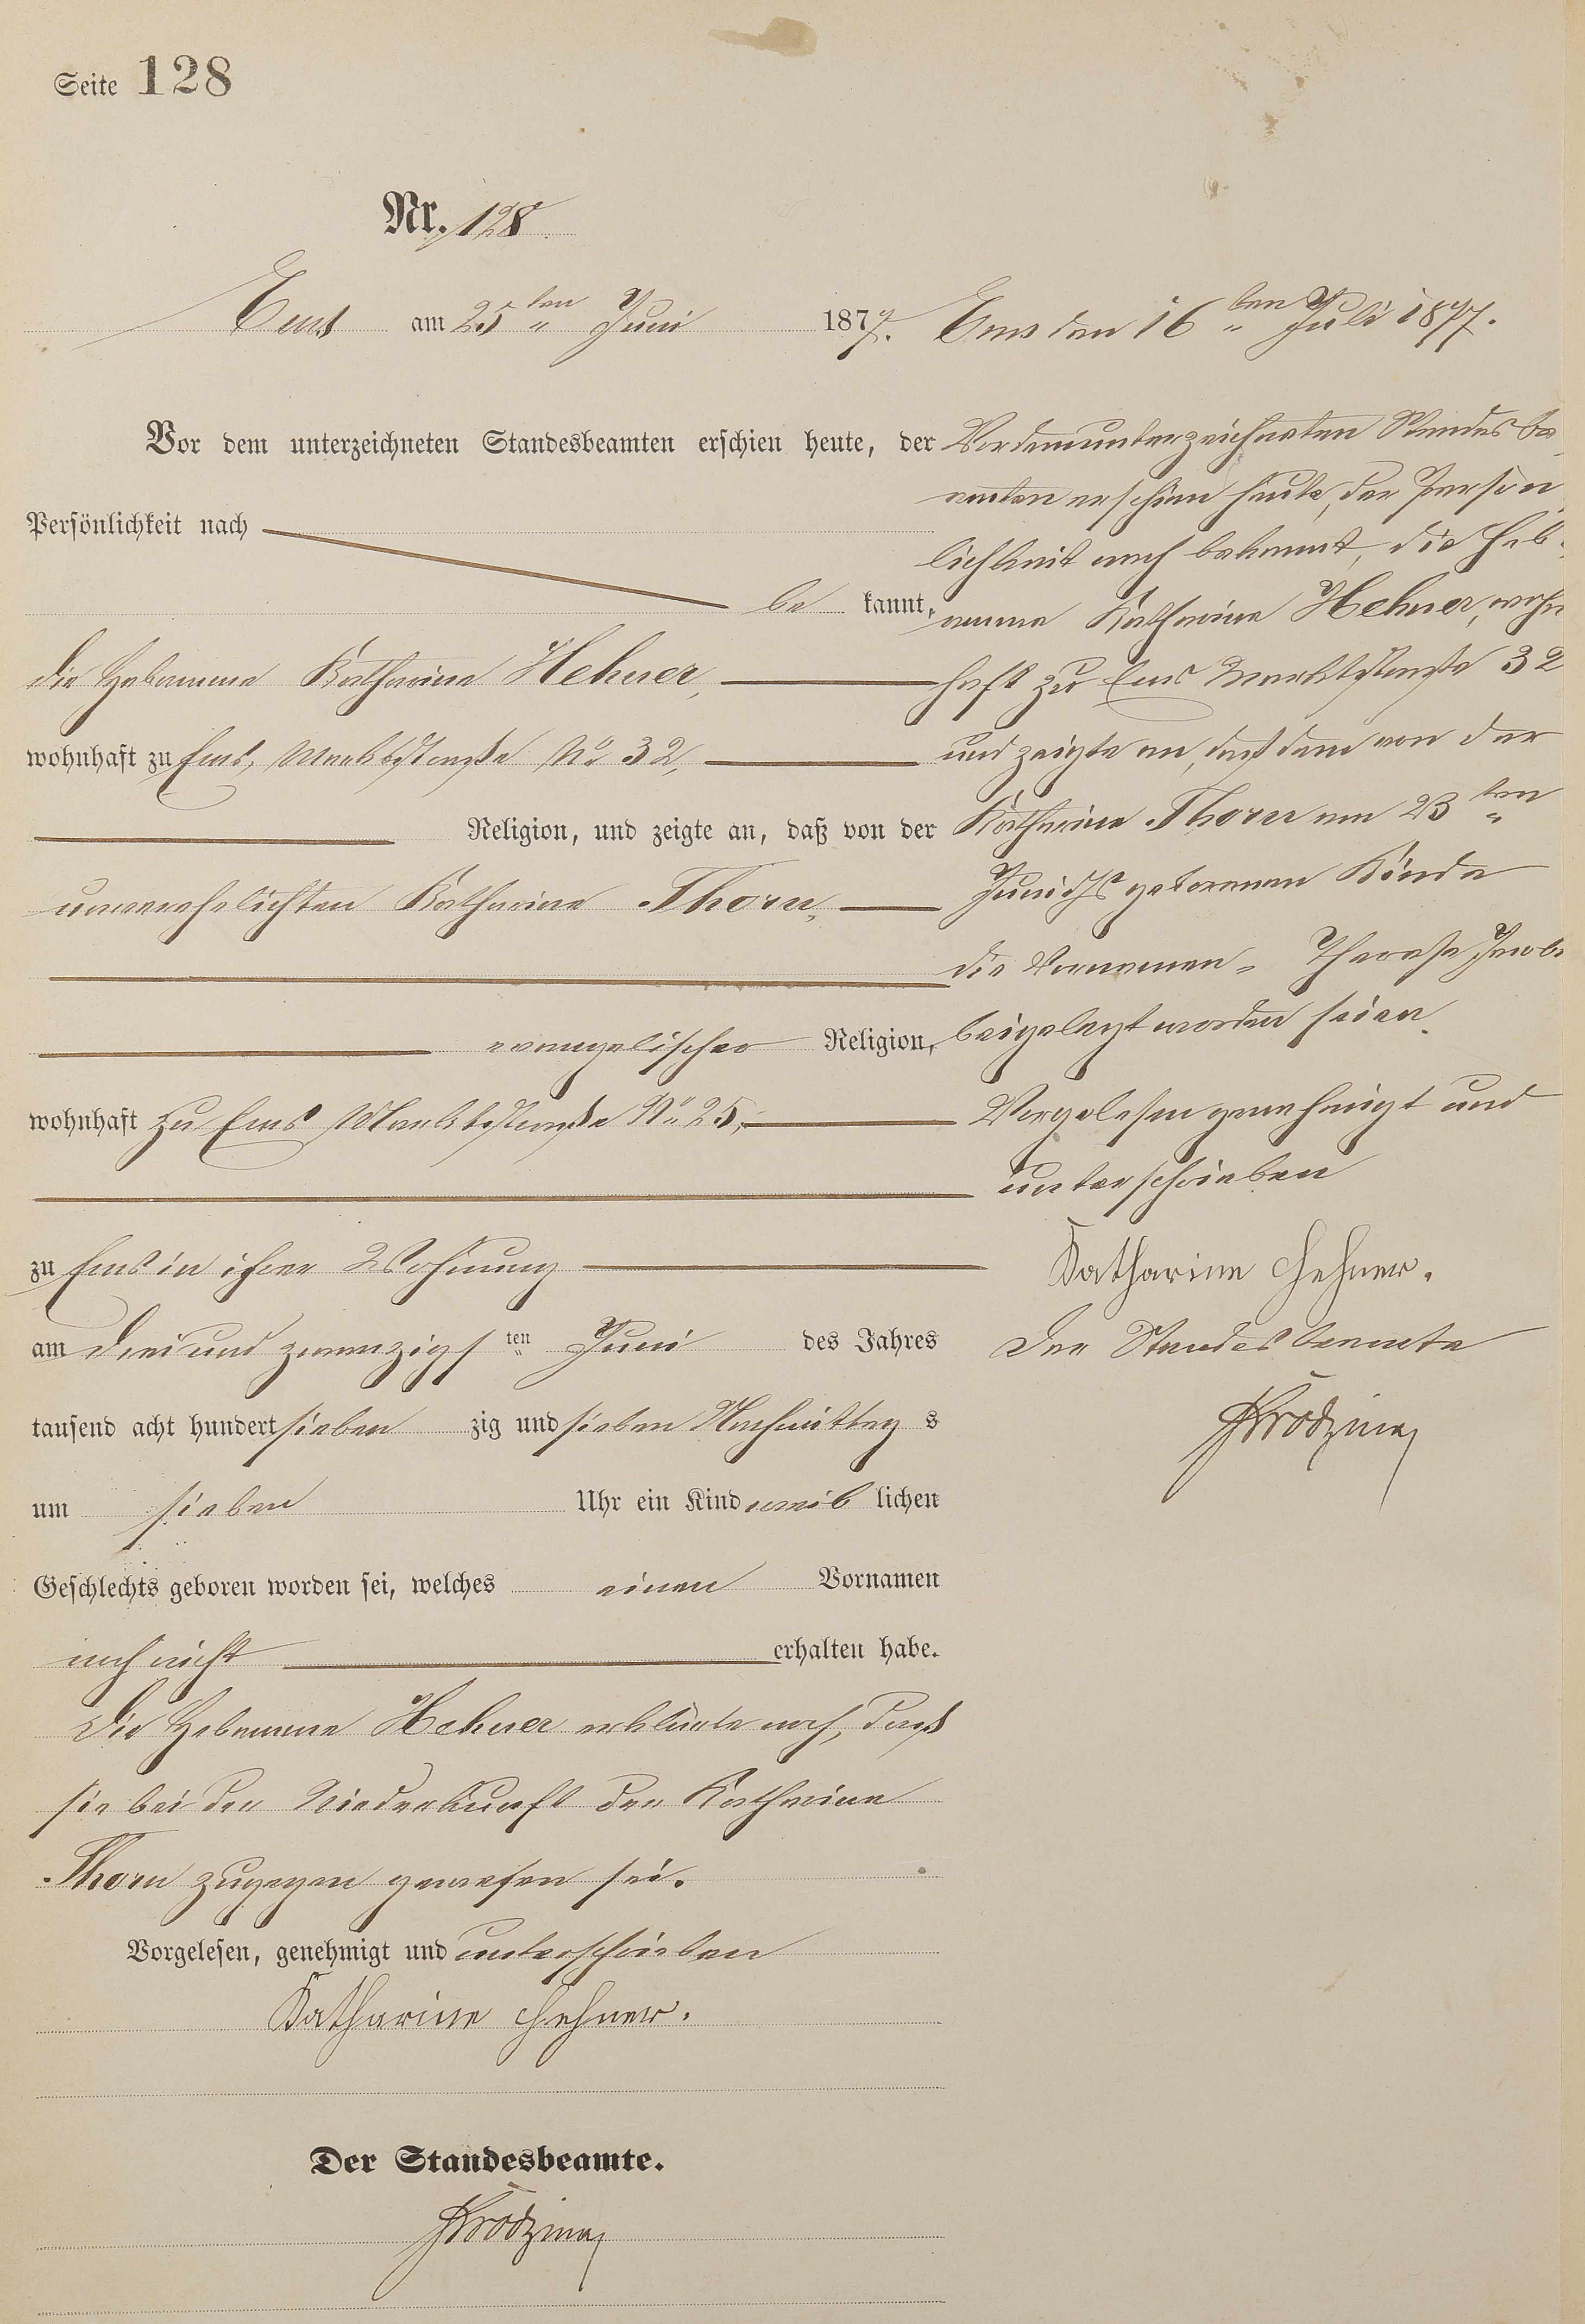 Seite 128
Nr. 128
Ems am 25ten Juni 1877.
Vor dem unterzeichneten Standesbeamten erschien heute, der
Persönlichkeit nach
be kannt,
die Hebamme Katharine Hehner,
wohnhaft zu Ems, Marktstraße No 32,
Religion, und zeigte an, daß von der
unverehelichten Katharine Thorn,
evangelischer Religion,
wohnhaft zu Ems Marktstraße No 25,
zu Ems in ihrer Wohnung
am drei und zwanzigsten Juni des Jahres
tausend acht hundert sieben zig und sieben Nachmittag s
um sieben Uhr ein Kind weib lichen
Geschlechts geboren worden sei, welches einen Vornamen
noch nicht erhalten habe.
Die Hebamme Hehner erklärte noch, daß
sie bei der Niederkunft der Katharine
Thorn zugegen gewesen sei.
Vorgelesen, genehmigt und unterschrieben
Katharine Hehner.
Der Standesbeamte.
Ems den 16ten Juli 1877.
Vor dem unterzeichneten Standesbe
amten erschien heute, der Persön
lichkeit nach bekannt, die Heb-
amme Katharine Hehner, wohn
haft zu Ems Marktstraße 32
und zeigte an, daß dem von der
Katharine Thorn am 23ten
Juni ds geborenen Kinde
die Vornamen Therese
beigelegt worden seien.
Vorgelesen genehmigt und
unterschrieben
Katharine Hehner.
Der Standesbeamte